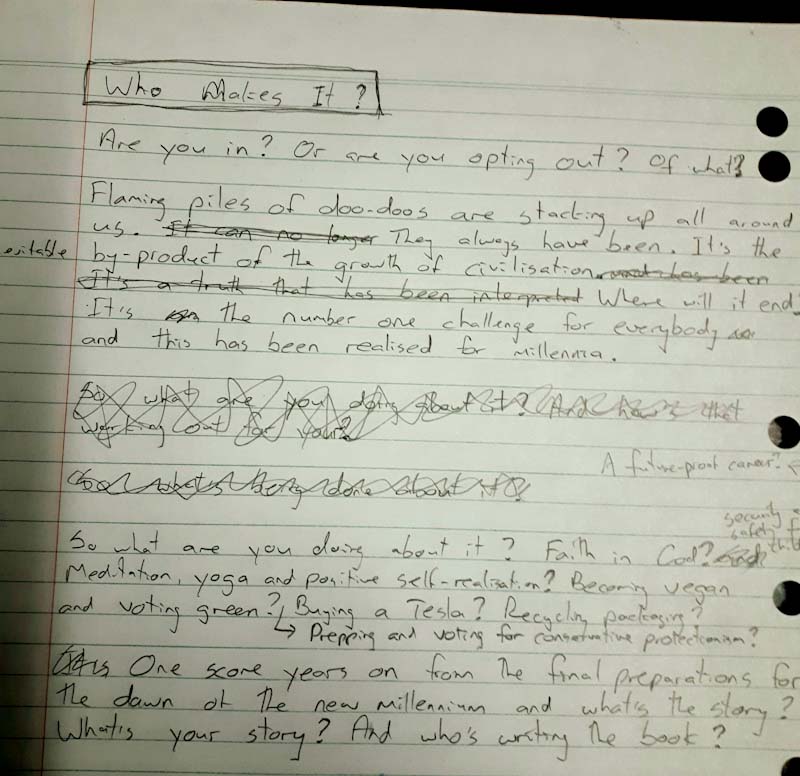 Who Makes It?
Are you in? Or are you opting out? Of what?
Flaming piles of doo-doos are stacking up all around
us. It can no longer They always have been. It's the
evitable by-product of the growth of civilisation. and has been
It's a truth that has been interpreted Where will it end.
It's the number one challenge for everybody
and this has been realised for millennia.
So what are you doing about it? And how's that
working out for you?
A future-proof career?
So what's being done about it?
security
safety
So what are you doing about it? Faith in God?
Meditation, yoga and positive self-realisation? Becoming vegan
and voting green? Buying a Tesla? Recycling packaging?
→ Prepping and voting for conservative protectionism?
One score years on from the final preparations for
the dawn of the new millennium and what's the story?
What's your story? And who's writing the book?